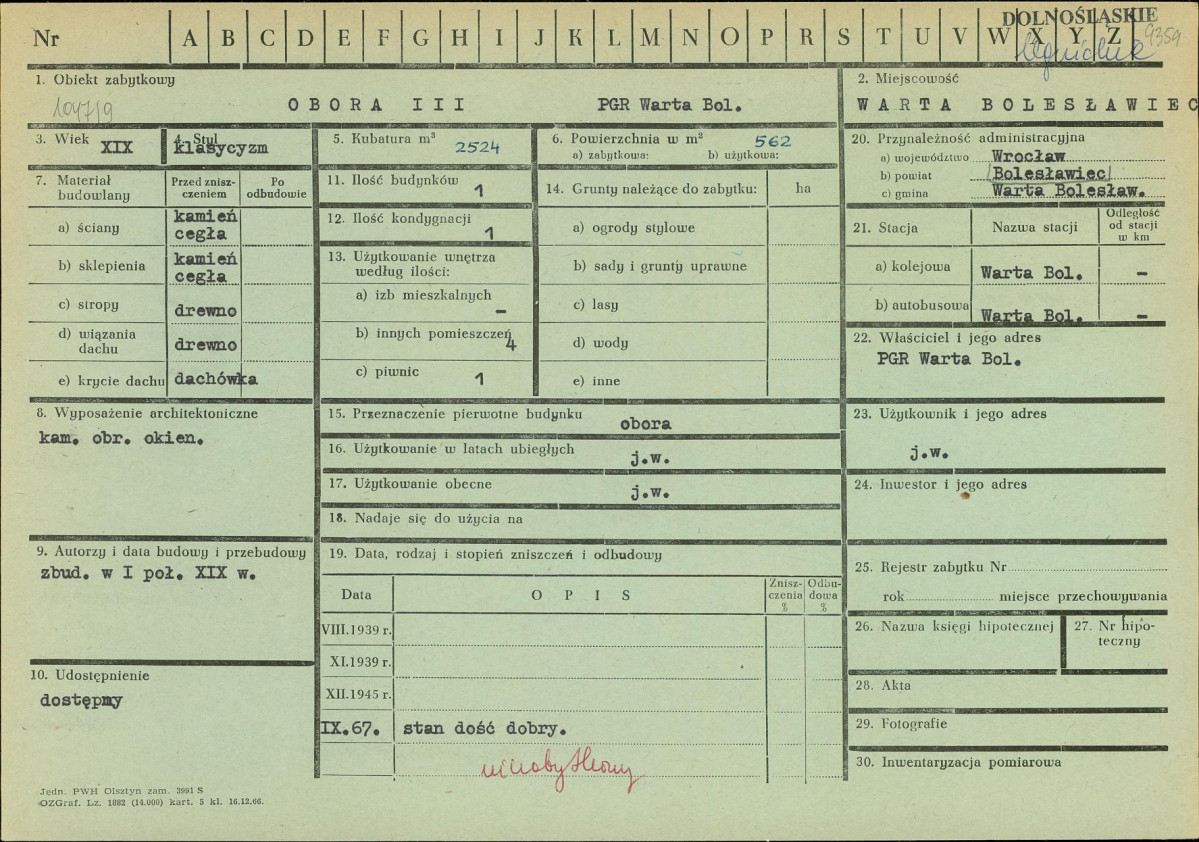 DOLNOŚLĄSKIE
9359
Nr A B C D E F G H I J K L M N O P R S T U V W X Y Z
1. Obiekt zabytkowy
1047/9
OBORA III PGR Warta Bol.
2. Miejscowość
WARTA BOLESŁAWIEC
3. Wiek XIX
4. Styl klasycyzm
5. Kubatura m³ 2524
6. Powierzchnia w m² 562
a) zabytkowa: b) użytkowa:
7. Materiał budowlany
Przed zniszczeniem
Po odbudowie
a) ściany kamień cegła
b) sklepienia kamień cegła
c) stropy drewno
d) wiązania dachu drewno
e) krycie dachu dachówka
8. Wyposażenie architektoniczne
kam. obr. okien.
9. Autorzy i data budowy i przebudowy
zbud. w I poł. XIX w.
10. Udostępnienie
dostępny
11. Ilość budynków 1
12. Ilość kondygnacji 1
13. Użytkowanie wnętrza według ilości:
a) izb mieszkalnych –
b) innych pomieszczeń 4
c) piwnic 1
14. Grunty należące do zabytku: ha
a) ogrody stylowe
b) sady i grunty uprawne
c) lasy
d) wody
e) inne
15. Przeznaczenie pierwotne budynku
obora
16. Użytkowanie w latach ubiegłych
j.w.
17. Użytkowanie obecne
j.w.
18. Nadaje się do użycia na
19. Data, rodzaj i stopień zniszczeń i odbudowy
Data OPIS Zniszczenia % Odbudowa %
VIII.1939 r.
XI.1939 r.
XII.1945 r.
IX.67. stan dość dobry.
20. Przynależność administracyjna
a) województwo Wrocław
b) powiat Bolesławiec
c) gmina Warta Bolesław.
21. Stacja Nazwa stacji Odległość od stacji w km
a) kolejowa Warta Bol. –
b) autobusowa Warta Bol. –
22. Właściciel i jego adres
PGR Warta Bol.
23. Użytkownik i jego adres
j.w.
24. Inwestor i jego adres
25. Rejestr zabytku Nr
rok miejsce przechowywania
26. Nazwa księgi hipotecznej
27. Nr hipoteczny
28. Akta
29. Fotografie
30. Inwentaryzacja pomiarowa
Jedn. PWH Olsztyn zam. 3991 S
OZGraf. Lz. 1882 (14.000) kart. 5 kl. 16.12.66.